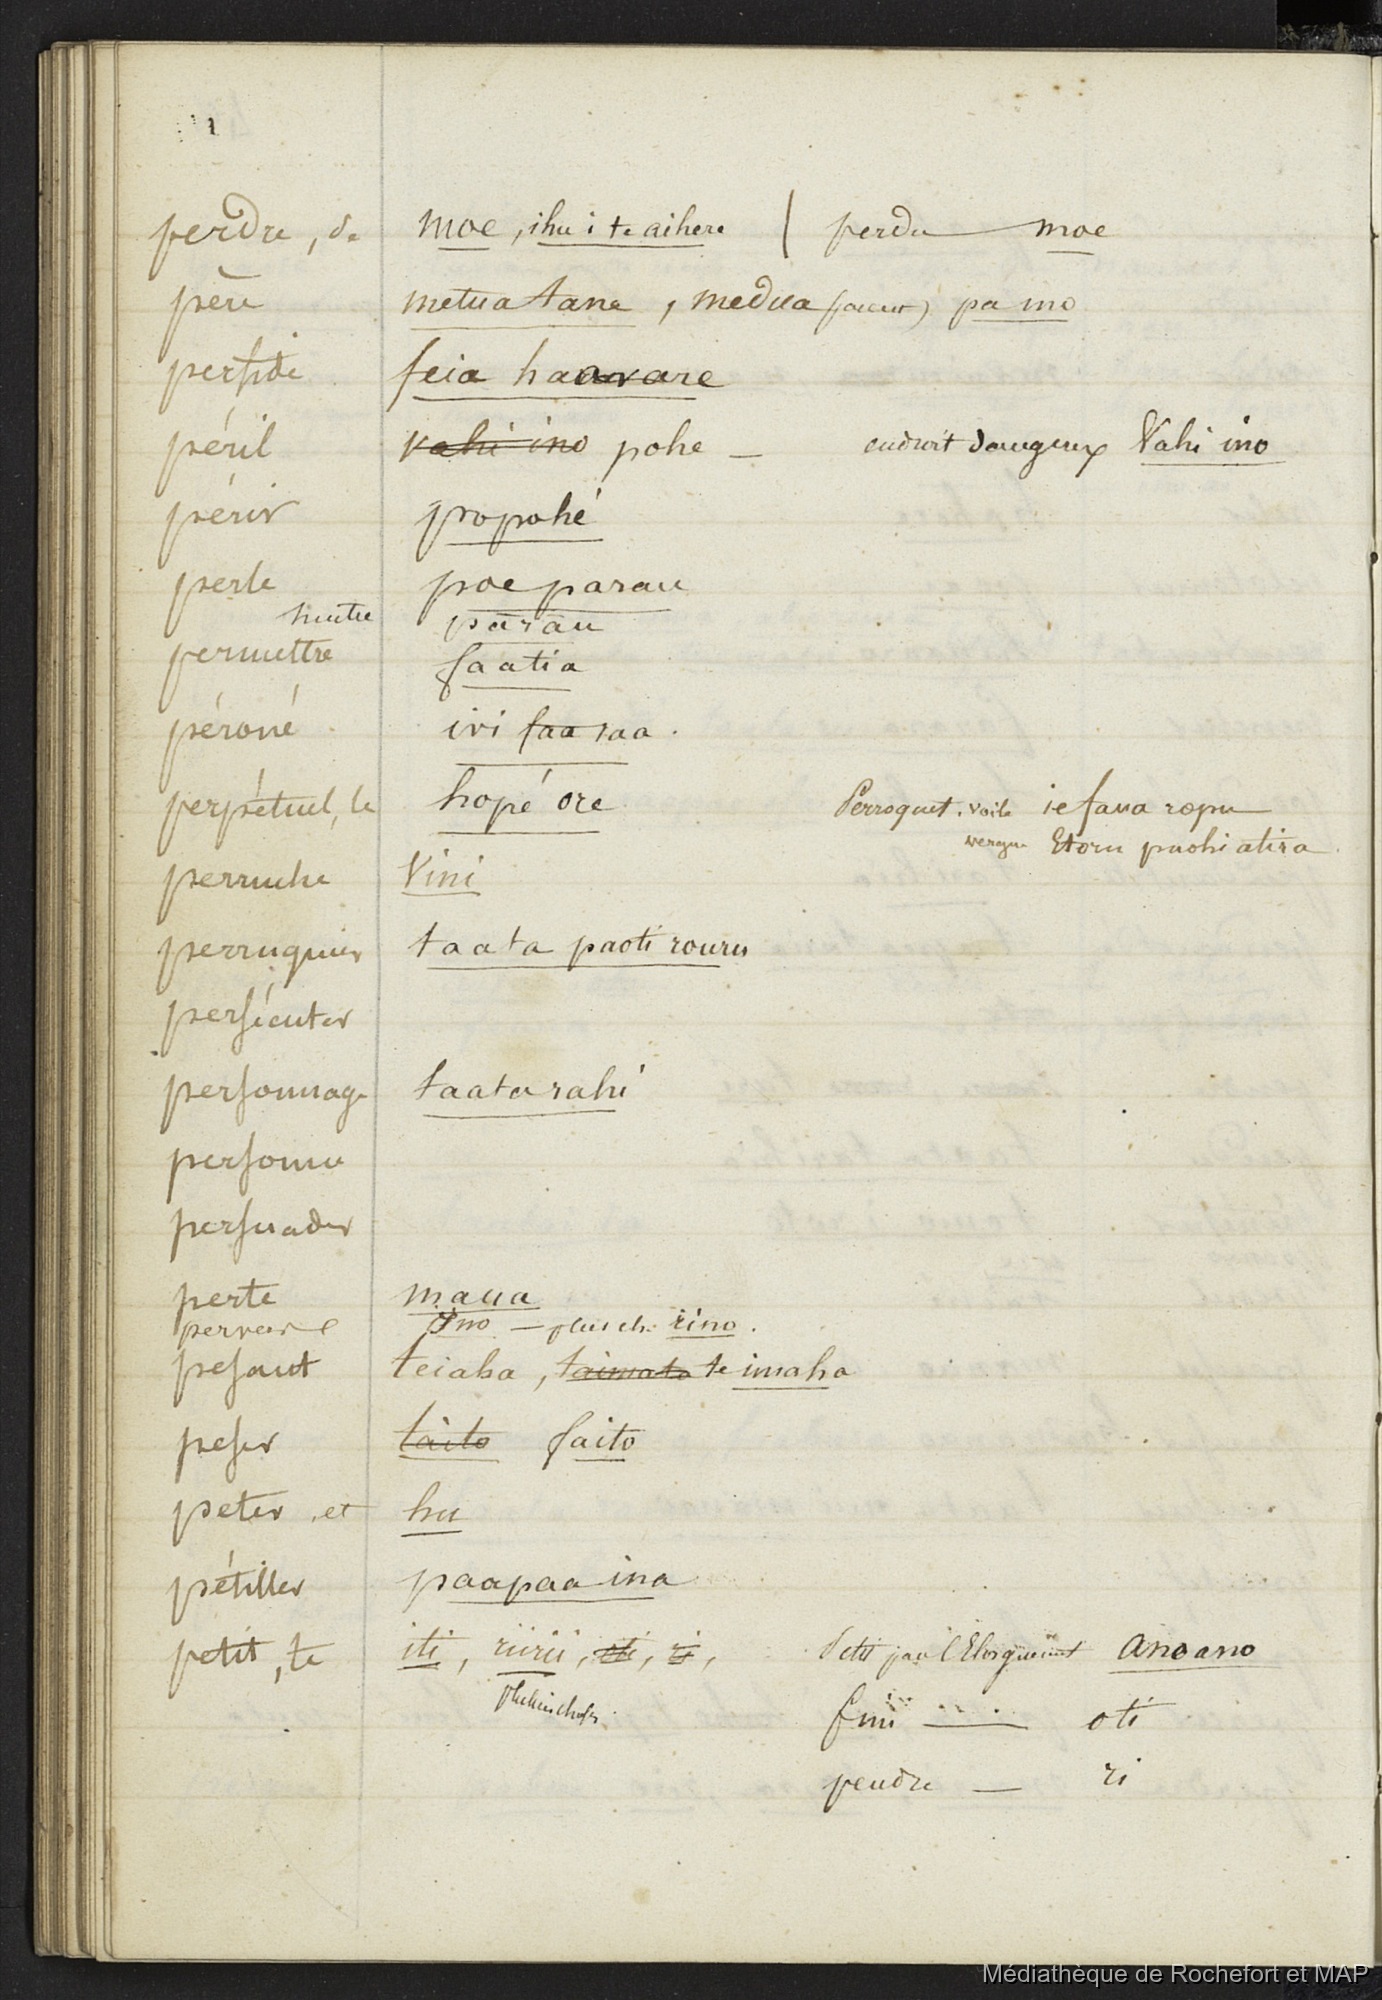 perdre, de moe, ihu i te aihere | perdu — moe
père metua tane, medua (parent) pa ino
perfide feia haavare
péril vahi ino pohe — endroit dangeux Vahi ino
périr propohé
perle poe parau
huitre parau
permettre faatia
péroné ivi faa raa.
perpétuel, le hopé ore Perroquet. voile ie faua ropu
vergue Etoru puohi atira
perruche Vini
perruquier taata paoti rouru
persécuter
personnage taata rahi
personne
persuader
perte maua
pervers ino — plus ch. iino.
pesant teiaha, taimata te imaha
peser taito faito
peter, et hu
pétiller paapaa ina
petit, te iti, riirii, oti, ri, Petit par l'Eloignement Anoano
fini — oti
pendre — ri
Médiathèque de Rochefort et MAP